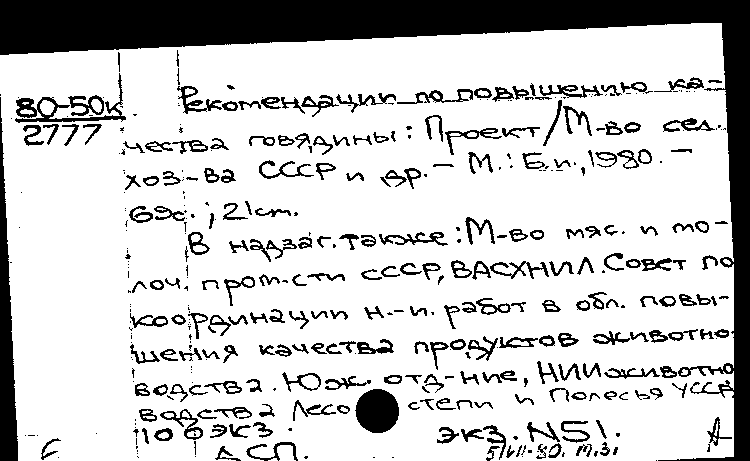 80-50к
2777
Рекомендации по повышению ка-
чества говядины: Проект/М-во сел.
хоз-ва СССР и др. - М.: Б.и., 1980. -
69с.; 21cm.
В надзаг. также: М-во мяс. и мо-
лоч. пром-сти СССР, ВАСХНИЛ. Совет по
координации н.-и. работ в обл. повы-
шения качества продуктов животно-
водства. Юж. отд-ние, НИИ животно
водства Лесостепи и Полесья УССР
100 экз. экз. N51.
ДСП. 5/VII-80.